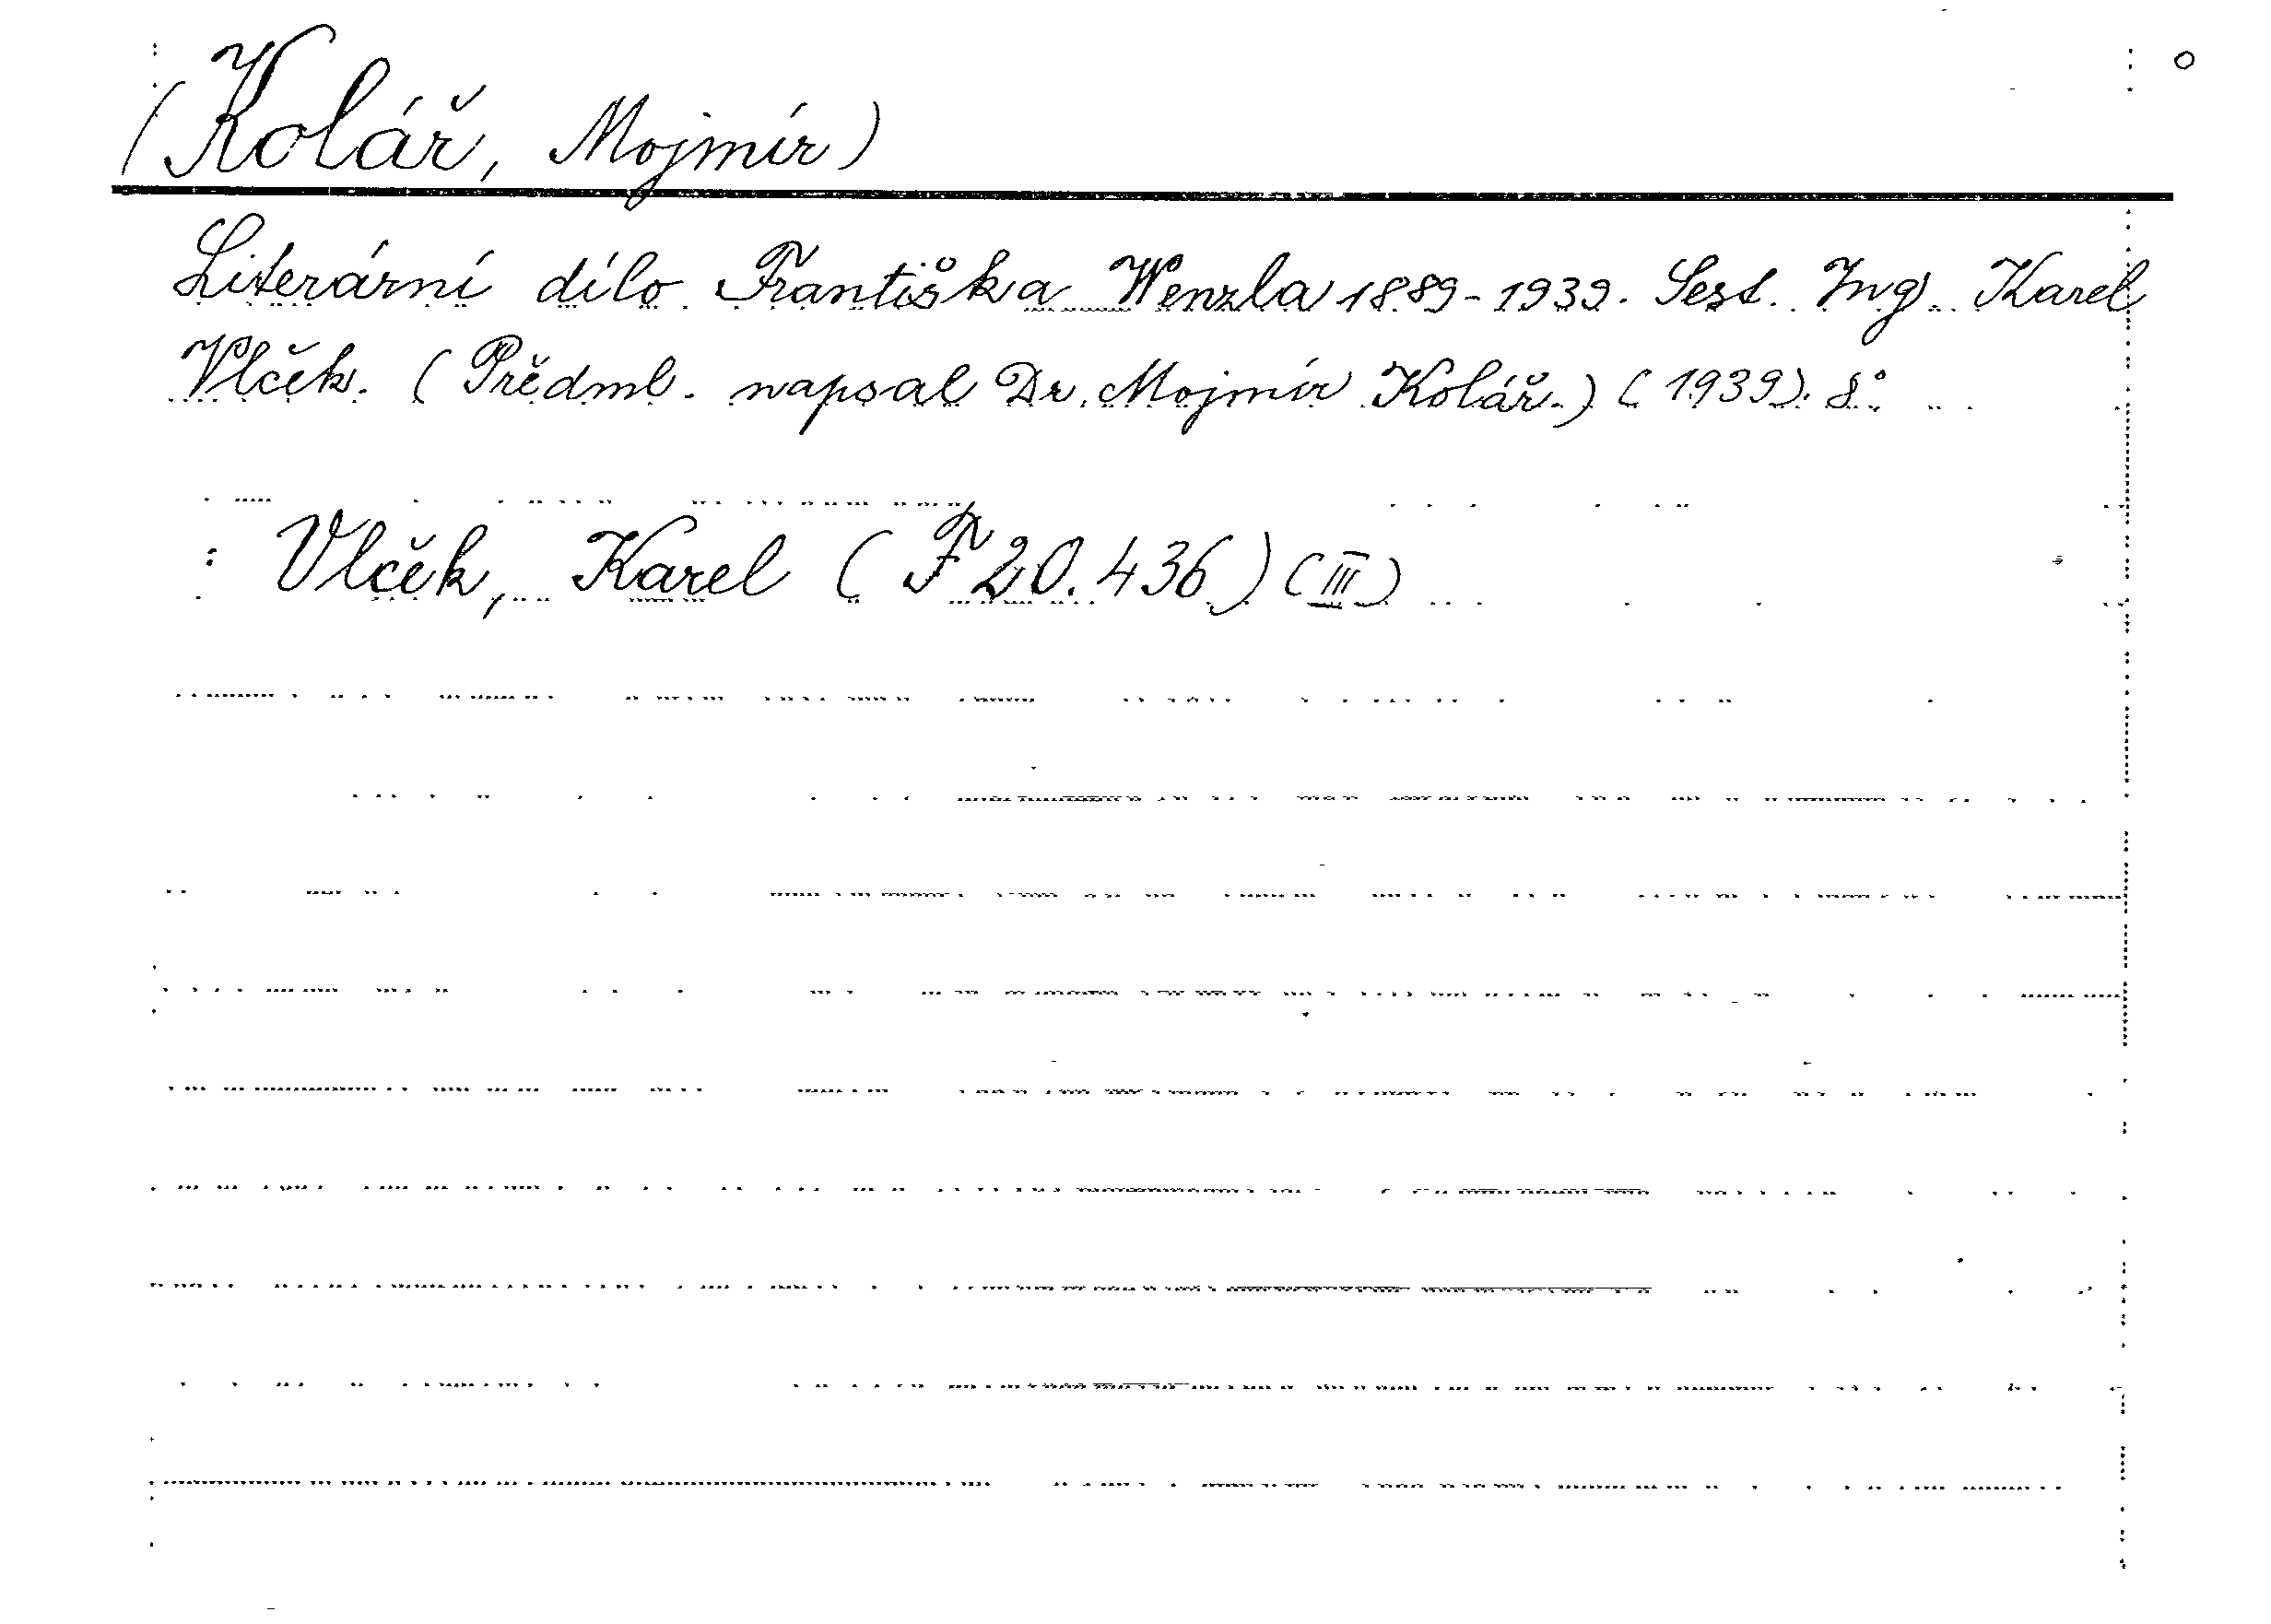 (Kolář, Mojmír)
Literární dílo Františka Wenzla 1889-1939. Sest. Ing. Karel
Vlček. (Předml. napsal Dr. Mojmír Kolář.) (1939). 8°
: Vlček, Karel (F 20.436) (III)